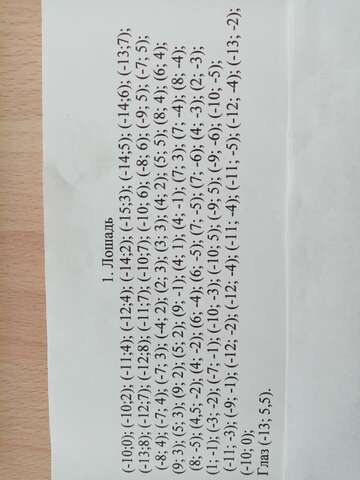 1. Лошадь
(-10;0); (-10;2); (-11;4); (-12;4); (-14;2); (-15;3); (-14;5); (-14;6); (-13;7);
(-13;8); (-12;7); (-12;8); (-11;7); (-10;7); (-10; 6); (-8; 6); (-9; 5); (-7; 5);
(-8; 4); (-7; 4); (-7; 3); (-4; 2); (2; 3); (3; 3); (4; 2); (5; 5); (8; 4); (6; 4);
(9; 3); (5; 3); (9; 2); (5; 2); (9; -1); (4; 1); (4; -1); (7; 3); (7; -4); (8; -4);
(8; -5); (4,5; -2); (4; -2); (6; -4); (6; -5); (7; -5); (7; -6); (4; -3); (2; -3);
(1; -1); (-3; -2); (-7; -1); (-10; -3); (-10; 5); (-9; 5); (-9; -6); (-10; -5);
(-11; -3); (-9; -1); (-12; -2); (-12; -4); (-11; -4); (-11; -5); (-12; -4); (-13; -2);
(-10; 0);
Глаз (-13; 5,5).